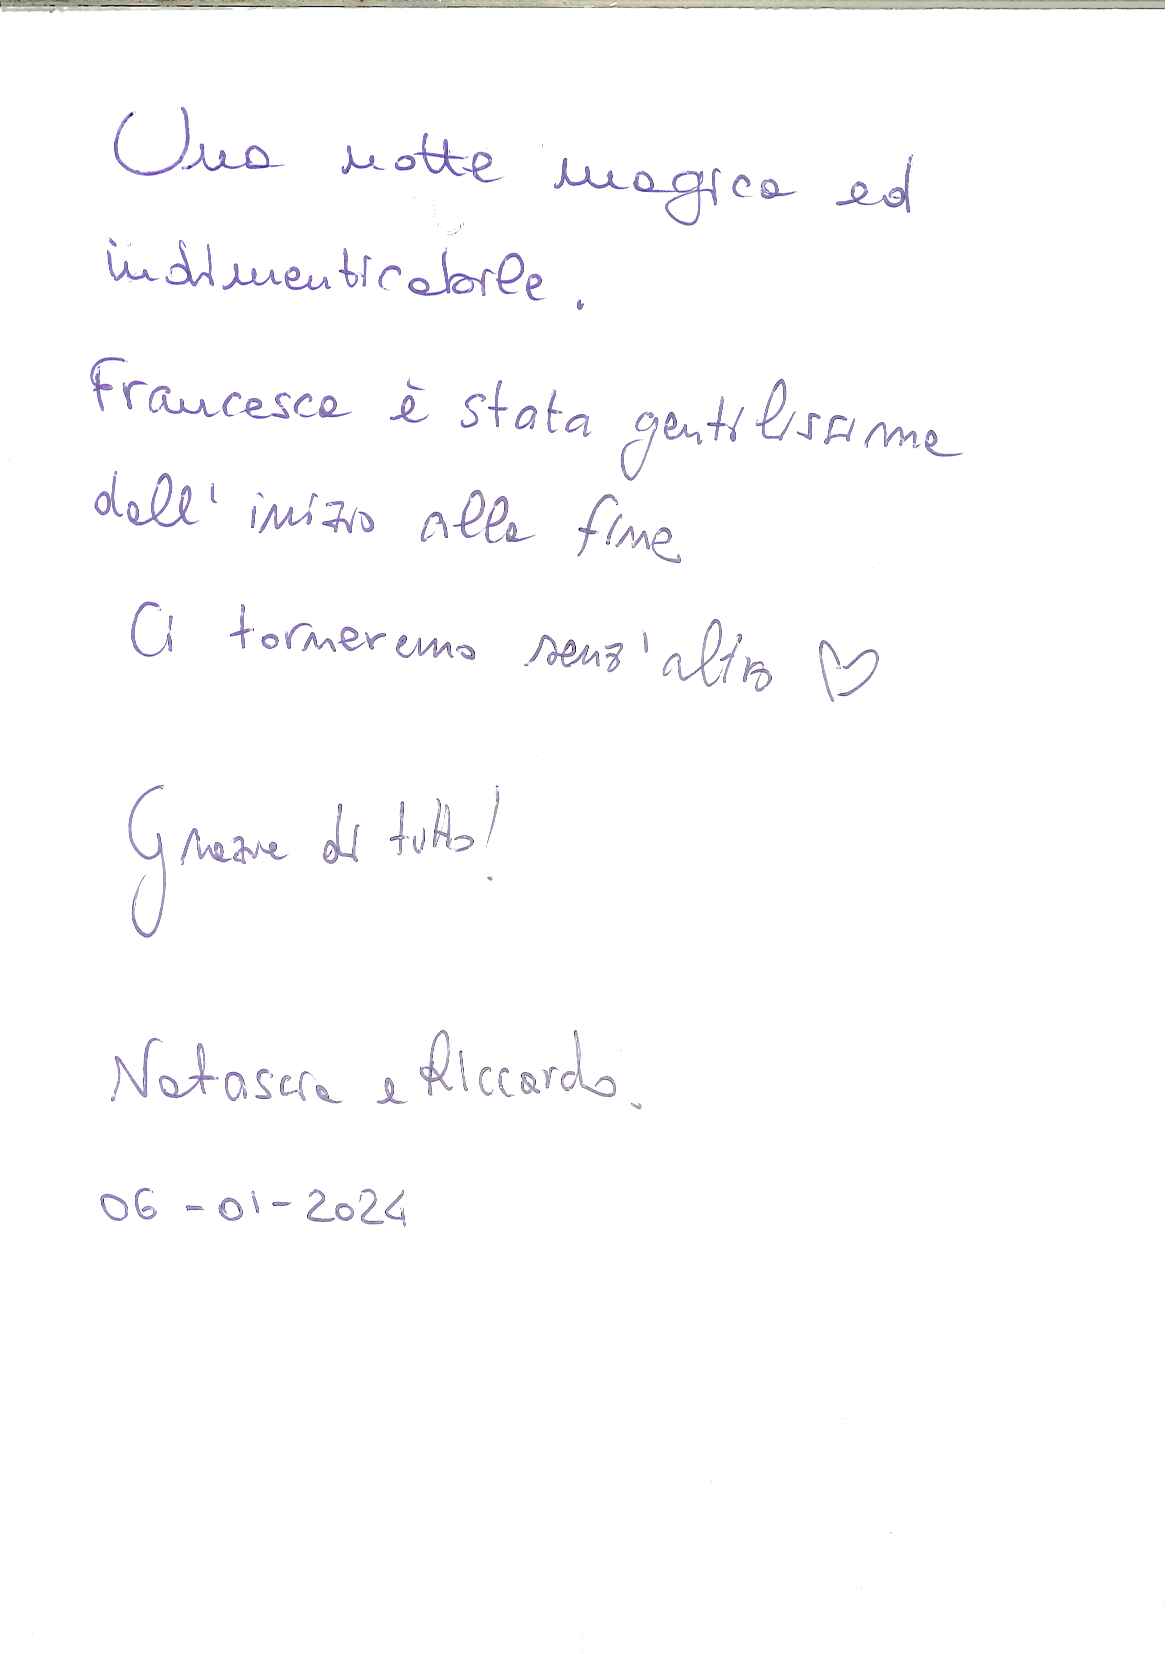 Una notte magica ed
indimenticabile.
Francesca è stata gentilissima
dall'inizio alla fine
Ci torneremo senz'altro ♡
Grazie di tutto!
Natascia e Riccardo.
06-01-2024